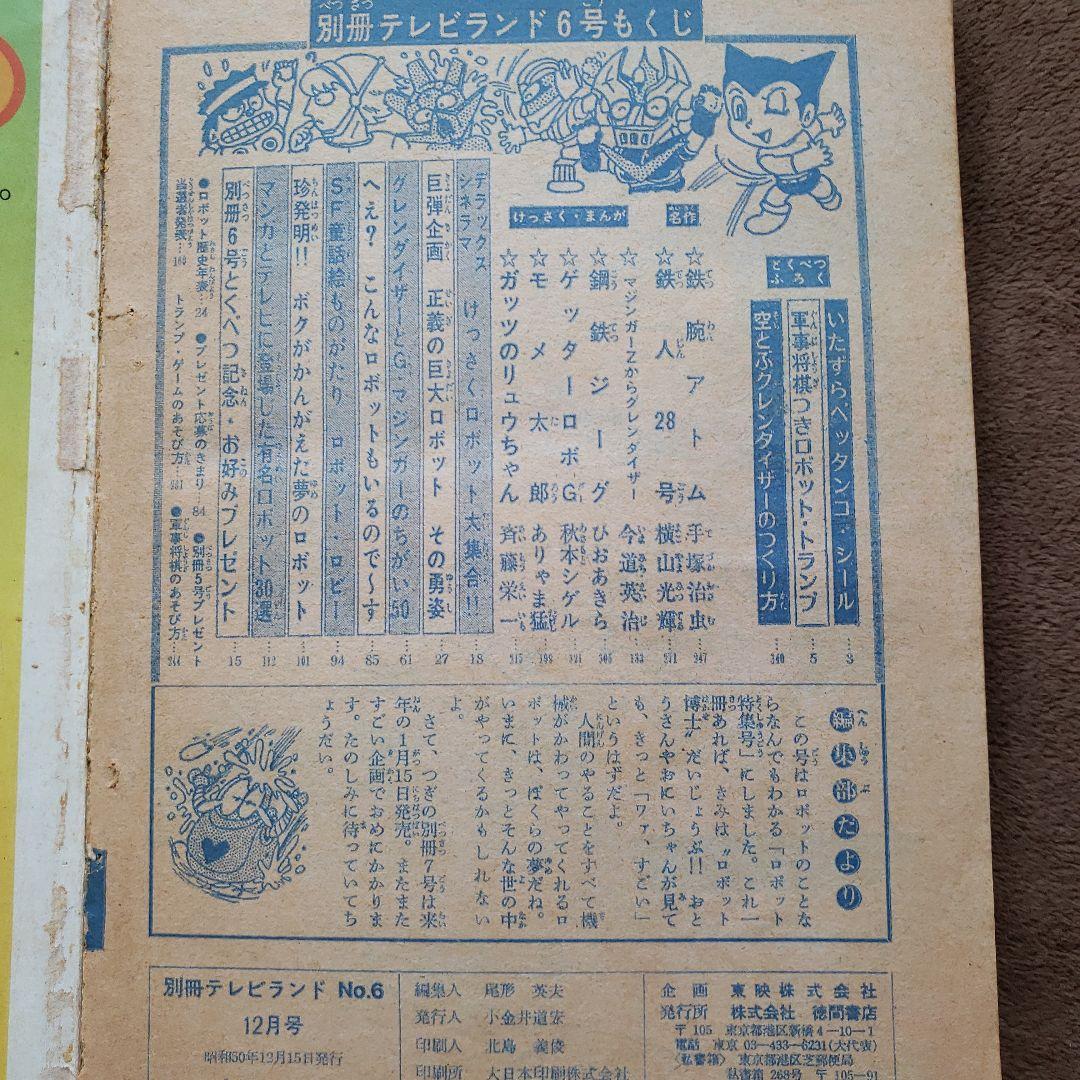 別冊テレビランド6号もくじ
とくべつふろく
いたずら・ペッタンコ・シール…3
軍事将棋つきロボット・トランプ…5
空とぶグレンダイザーのつくり方…340
名作
けっさく・まんが
☆鉄腕アトム 手塚治虫…247
☆鉄人28号 横山光輝…271
☆マジンガーZからグレンダイザー 今道英治…133
☆鋼鉄ジーグ ひおあきら…305
☆ゲッターロボG 秋本シゲル…321
☆モメ太郎 ありゃま猛…199
☆ガッツのリュウちゃん 斉藤栄一…215
デラックスシネラマ けっさくロボット大集合!!…18
巨弾企画 正義の巨大ロボット その勇姿…27
グレンダイザーとG・マジンガーのちがい50…61
へえ? こんなロボットもいるので〜す…85
SF童話絵ものがたり ロボット・ロビー…94
珍発明!! ボクがかんがえた夢のロボット…101
マンガとテレビに登場した有名ロボット30選…112
別冊6号とくべつ記念・お好みプレゼント…15
●ロボット歴史年表…24 ●プレゼント応募のきまり…84 ●別冊5号プレゼント
当選者発表…160 トランプ・ゲームのあそび方…231 ●軍事将棋のあそび方…244
編集部だより
この号はロボットのことな
らなんでもわかる「ロボット
特集号」にしました。これ一
冊あれば、きみは〝ロボット
博士〟だいじょうぶ!! おと
うさんやおにいちゃんが見て
も、きっと「ワァ、すごい」
というはずだよ。
人間のやることをすべて機
械がかわってやってくれるロ
ボットは、ぼくらの夢だね。
いまに、きっとそんな世の中
がやってくるかもしれない
よ。
さて、つぎの別冊7号は来
年の1月15日発売。またまた
すごい企画でおめにかかりま
す。たのしみに待っていてち
ょうだい。
別冊テレビランド No.6
12月号
昭和50年12月15日発行
編集人 尾形 英夫
発行人 小金井道宏
印刷人 北島 義俊
印刷所 大日本印刷株式会社
企画 東映株式会社
発行所 株式会社 徳間書店
〒105 東京都港区新橋4-10-1
電話 東京 03-433-6231(大代表)
〈私書箱〉 東京都港区芝郵便局
私書箱 268号 〒105-91